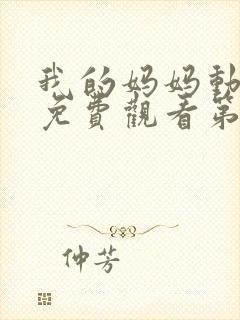 我的妈妈動
免費觀看第
仲芳